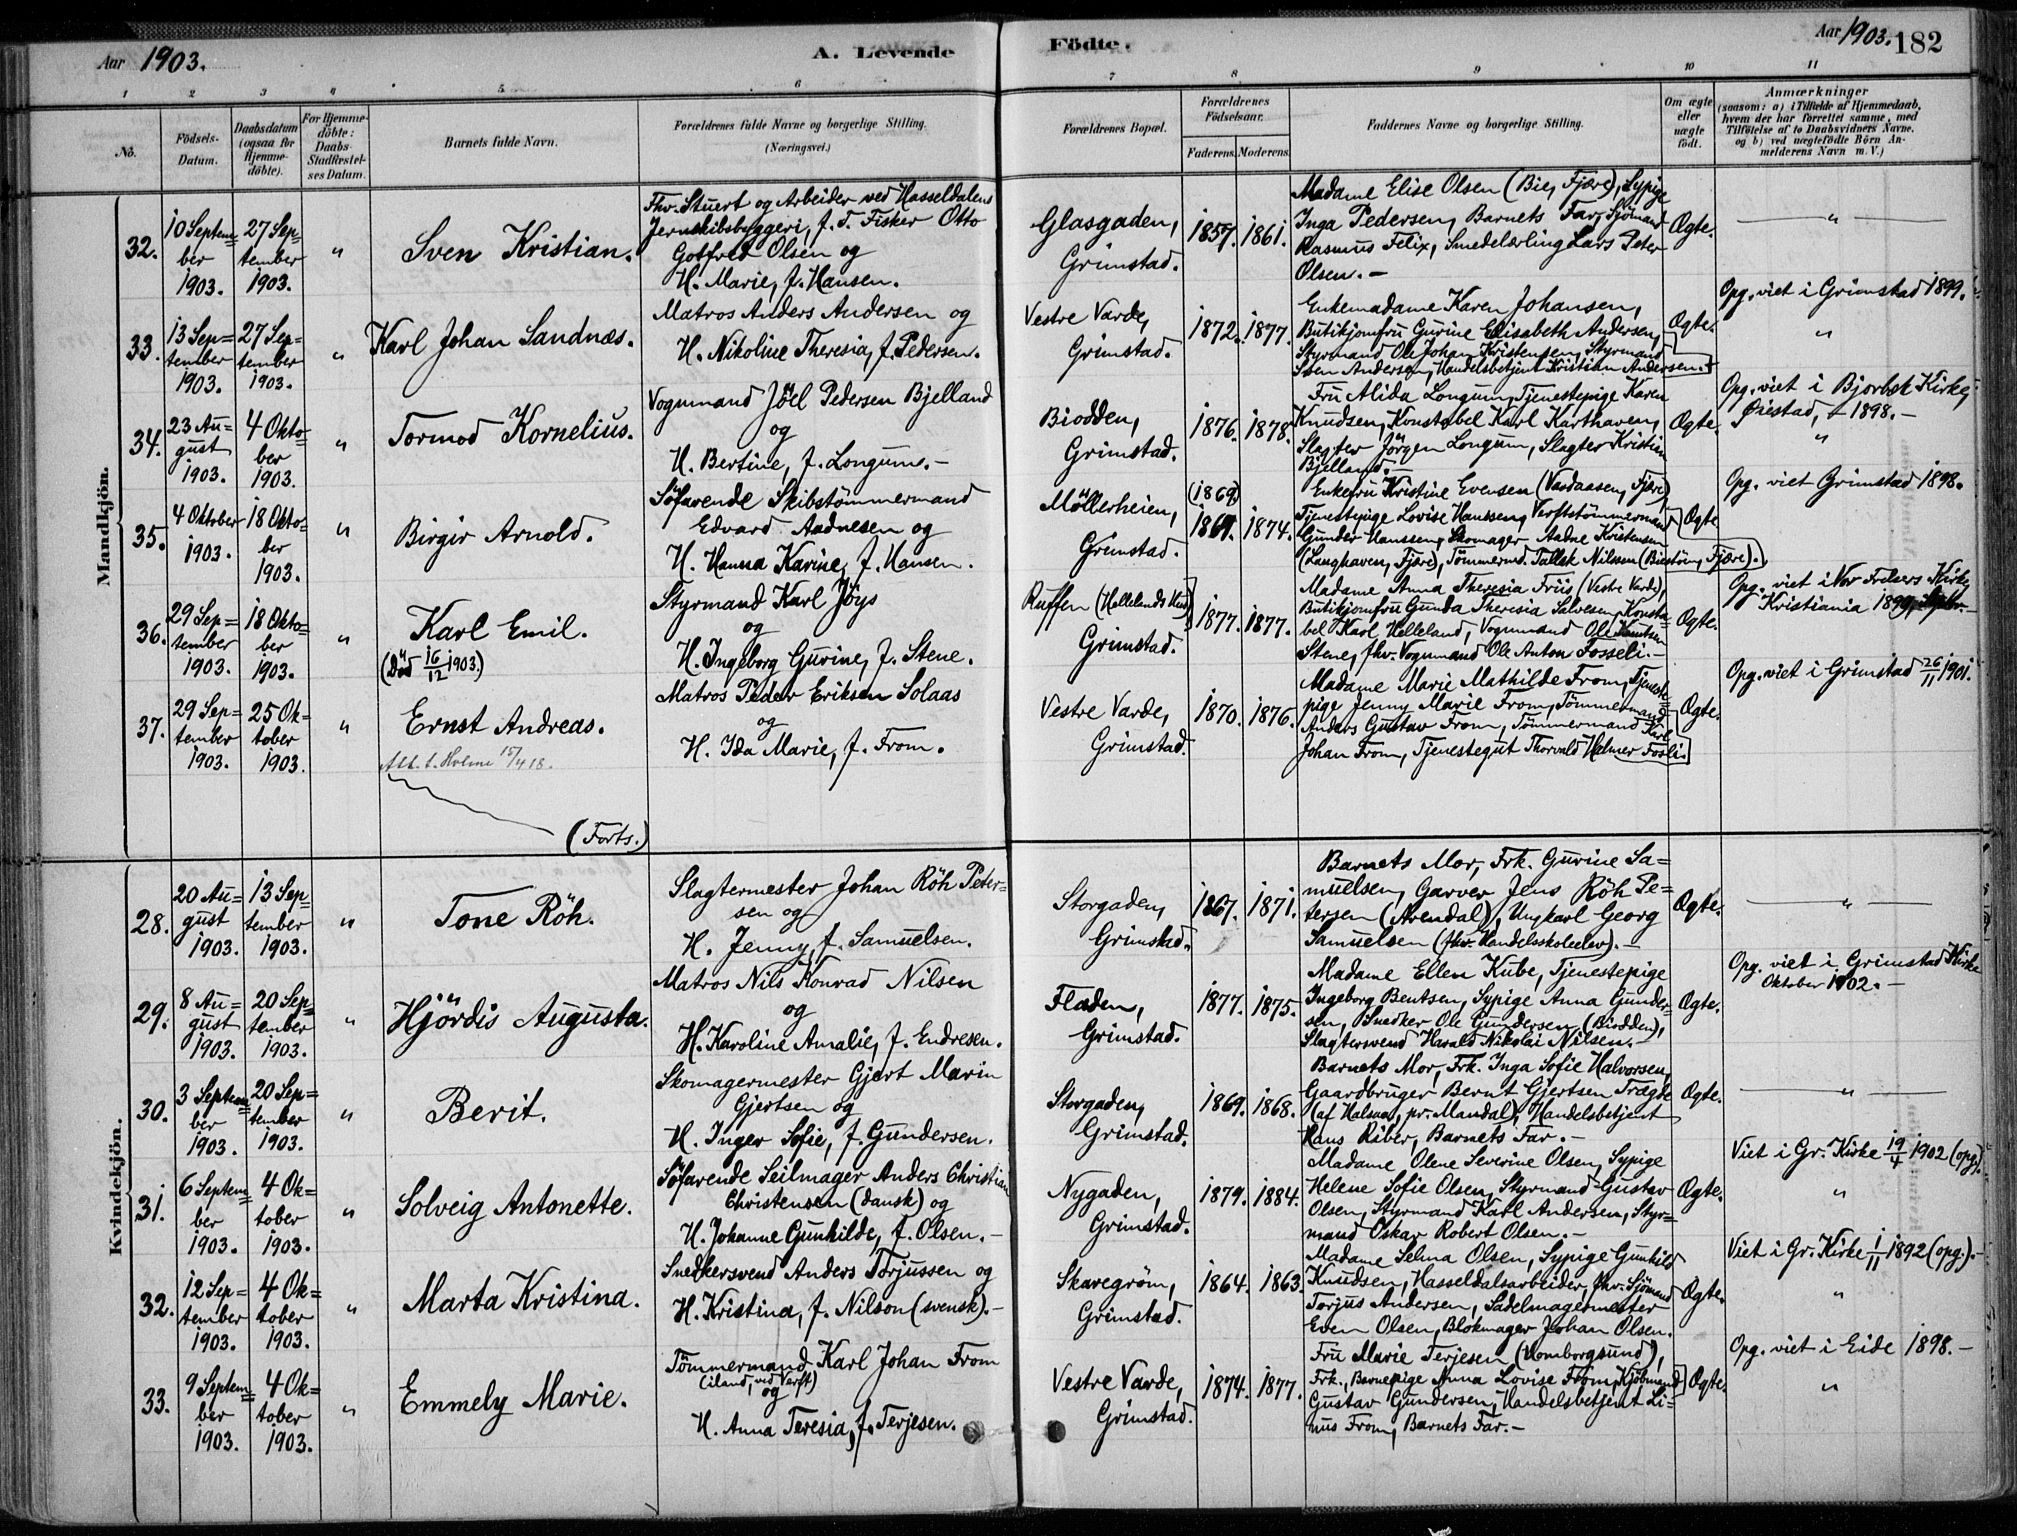 Aar 1903.
A. Levende
Födte.
Aar 1903.
182
1 2 3 4 5 6 7 8 9 10 11
No.
Födsels-
Datum.
Daabsdatum
(ogsaa for
Hjemme-
döbte).
For Hjemme-
döbte:
Daabs-
Stadfæstel-
ses Datum.
Barnets fulde Navn.
Forældrenes fulde Navne og borgerlige Stilling.
(Næringsvei.)
Forældrenes Bopæl.
Forældrenes
Födselsaar.
Faderens.
Moderens.
Faddernes Navne og borgerlige Stilling.
Om ægte
eller
uægte
födt.
Anmærkninger
(saasom: a) i Tilfælde af Hjemmedaab,
hvem der har forrettet samme, med
Tilföielse af to Daabsvidners Navne,
og b) ved uægtefödte Börn An-
melderens Navn m. V.)
Mandkjön.
32.
10 Septem=
ber
1903.
27 Sep=
tember
1903.
"
Sven Kristian.
Fhv. Stuert og Arbeider ved Hasseldalens
Jernskibsbyggeri, f. T. Fisker Otto
Gotfred Olsen og
H. Marie, f. Hansen.
Glasgaden,
Grimstad.
1857. 1861.
Madame Elise Olsen (Bie, Fjære), Sypige
Inga Pedersen, Barnets Far, Sjömand
Rasmus Felix, Smedelærling Lars Peter
Olsen. –
Ægte.
— " —
33.
13 Sep=
tember
1903.
27 Sep=
tember
1903.
"
Karl Johan Sandnæs.
Matros Anders Andersen og
H. Nikoline Theresia, f. Pedersen.
Vestre Varde,
Grimstad.
1872. 1877.
Enkemadame Karen Johansen,
Butikjomfru Gurine Elisabeth Andersen,
Styrmand Ole Johan Kristensen, Styrmand
Sven Andersen, Handelsbetjent Kristian Andersen.
Ægte.
Opg. viet i Grimstad 1899.
"
34.
23 Au=
gust
1903.
4 Okto=
ber
1903.
"
Tormod Kornelius.
Vognmand Jöel Pedersen Bjelland
og
H. Bertine, f. Longum. –
Biodden,
Grimstad.
1876. 1878.
Fru Alida Longum, Tjenestepige Karen
Knudsen, Konstabel Karl Karthaven,
Slagter Jörgen Longum, Slagter Kristian
Bjelland. –
Ægte.
Opg. viet i Bjorbæk Kirke,
Öiestad, – 1898. –
"
35.
4 Oktober
1903.
18 Okto=
ber
1903.
"
Birgir Arnold.
Söfarende Skibstömmermand
Edvard Aadnesen og
H. Hanna Karine, f. Hansen.
Möllerheien,
Grimstad.
(1869)
1874.
Enkefru Kristine Evensen (Vardaasen, Fjære),
Tjenestepige Lovise Hanssen, Verftstömmermand
Gunder Hanssen, Skomager Aadne Kristensen
(Langhaven, Fjære), Tömmermd. Tallak Nilssen (Biestöen, Fjære).
Ægte
Opg. viet Grimstad 1898.
36.
29 Sep=
tember
1903.
18 Okto=
ber
1903.
"
Karl Emil.
(Död 16/12 1903.)
Styrmand Karl Jöys
og
H. Ingeborg Gurine, f. Stene.
Ruffen (Hellelands Hus),
Grimstad.
1877. 1877.
Madame Anna Theresia Friis (Vestre Varde),
Butikjomfru Gunda Theresia Salvesen, Konsta=
bel Karl Helleland, Vognmand Ole Knutsen
Stene, fhv. Vognmand Ole Anton Fosseli. –
Ægte.
Opg. viet i Vor Frelsers Kirke,
Kristiania 1899,
37.
29 Sep=
tember
1903.
25 Ok=
tober
1903.
"
Ernst Andreas.
Att. t. Holme 15/4 18.
Matros Peder Eriksen Solaas
og
H. Ida Marie, f. From.
Vestre Varde,
Grimstad.
1870. 1876.
Madame Marie Mathilde From, Tjeneste=
pige Jenny Marie From, Tömmermand
Anders Gustav From, Tömmermand Karl
Johan From, Tjenestegut Thorvald Helmer Fosli.
Ægte.
Opg. viet i Grimstad 26/11 1901.
(Forts.)
Kvindekjön.
28.
20 Au=
gust
1903.
13 Sep=
tember
1903.
"
Tone Röh.
Slagtermester Johan Röh Peter=
sen og
H. Jenny, f. Samuelsen.
Storgaden,
Grimstad.
1867. 1871.
Barnets Mor, Frk. Gurine Sa=
muelsen, Garver Jens Röh Pe=
tersen (Arendal), Ungkarl Georg
Samuelsen (fhv. Handelsskoleelev). –
Ægte.
— " —
29.
8 Au=
gust
1903.
20 Sep=
tember
1903.
"
Hjördis Augusta.
Matros Nils Konrad Nilsen
og
H. Karoline Amalie, f. Endresen.
Fladen,
Grimstad.
1877. 1875.
Madame Ellen Kube, Tjenestepige
Ingeborg Bentsen, Sypige Anna Gunder=
sen, Snedker Ole Gundersen (Biodden),
Slagtersvend Harald Nikolai Nilsen. –
Ægte.
Opg. viet i Grimstad Kirke
Oktober 1902. –
30.
3 Septem=
ber
1903.
20 Sep=
tember
1903.
"
Berit.
Skomagermester Gjert Marin
Gjertsen og
H. Inger Sofie, f. Gundersen.
Storgaden,
Grimstad.
1869. 1868.
Barnets Mor, Frk. Inga Sofie Halvorsen,
Gaardbruger Bernt Gjertsen Trægde
(af Halsaa, pr. Mandal), Handelsbetjent
Hans Riber, Barnets Far. –
Ægte.
— " —
31.
6 Septem=
ber
1903.
4 Ok=
tober
1903.
"
Solveig Antonette.
Söfarende Seilmager Anders Christian
Christensen (dansk) og
H. Johanne Gunhilde, f. Olsen. –
Nygaden,
Grimstad.
1879. 1884.
Madame Olene Severine Olsen, Sypige
Helene Sofie Olsen, Styrmand Gustav
Olsen, Styrmand Karl Andersen, Styr=
mand Oskar Robert Olsen. –
Ægte.
Viet i Gr. Kirke 19/4 1902 (opg).
"
32.
12 Sep=
tember
1903.
4 Ok=
tober
1903.
"
Marta Kristina.
Snedkersvend Anders Torjussen og
H. Kristina, f. Nilson (svensk). –
Skaregröm,
Grimstad.
1864. 1863
Madame Selma Olsen, Sypige Gunhild
Knudsen, Hasseldalsarbeider, fhv. Sjömand
Torjus Andersen, Sadelmagermester
Even Olsen, Blokmager Johan Olsen.
Ægte.
Viet i Gr. Kirke 1/11 1892 (opg.). –
"
33.
9 Septem=
ber
1903.
4 Ok=
tober
1903.
"
Emmely Marie.
Tömmermand Karl Johan From
(iland, ved Verft)
og
H. Anna Teresia, f. Terjesen.
Vestre Varde,
Grimstad.
1874. 1877.
Fru Marie Terjesen (Homborgsund),
Frk., Barnepige Anna Lovise From, Kjöbmand
Gustav Gundersen, Handelsbetjent Li=
nus From, Barnets Far. –
Ægte.
Opg. viet i Eide 1898. –
"